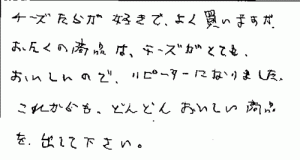 チーズたらが好きで、よく買いますが、
おたくの商品は、チーズがとても、
おいしいので、リピーターになりました。
これからも、どんどんおいしい商品
を出して下さい。